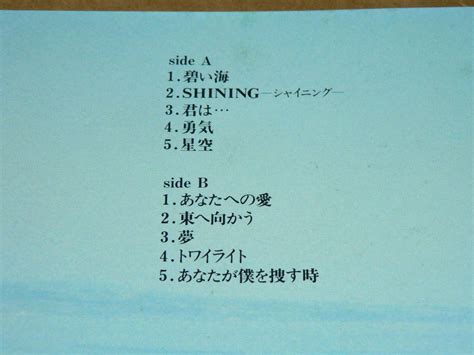 side A
1.碧い海
2.SHINING―シャイニング―
3.君は…
4.勇気
5.星空
side B
1.あなたへの愛
2.東へ向かう
3.夢
4.トワイライト
5.あなたが僕を捜す時